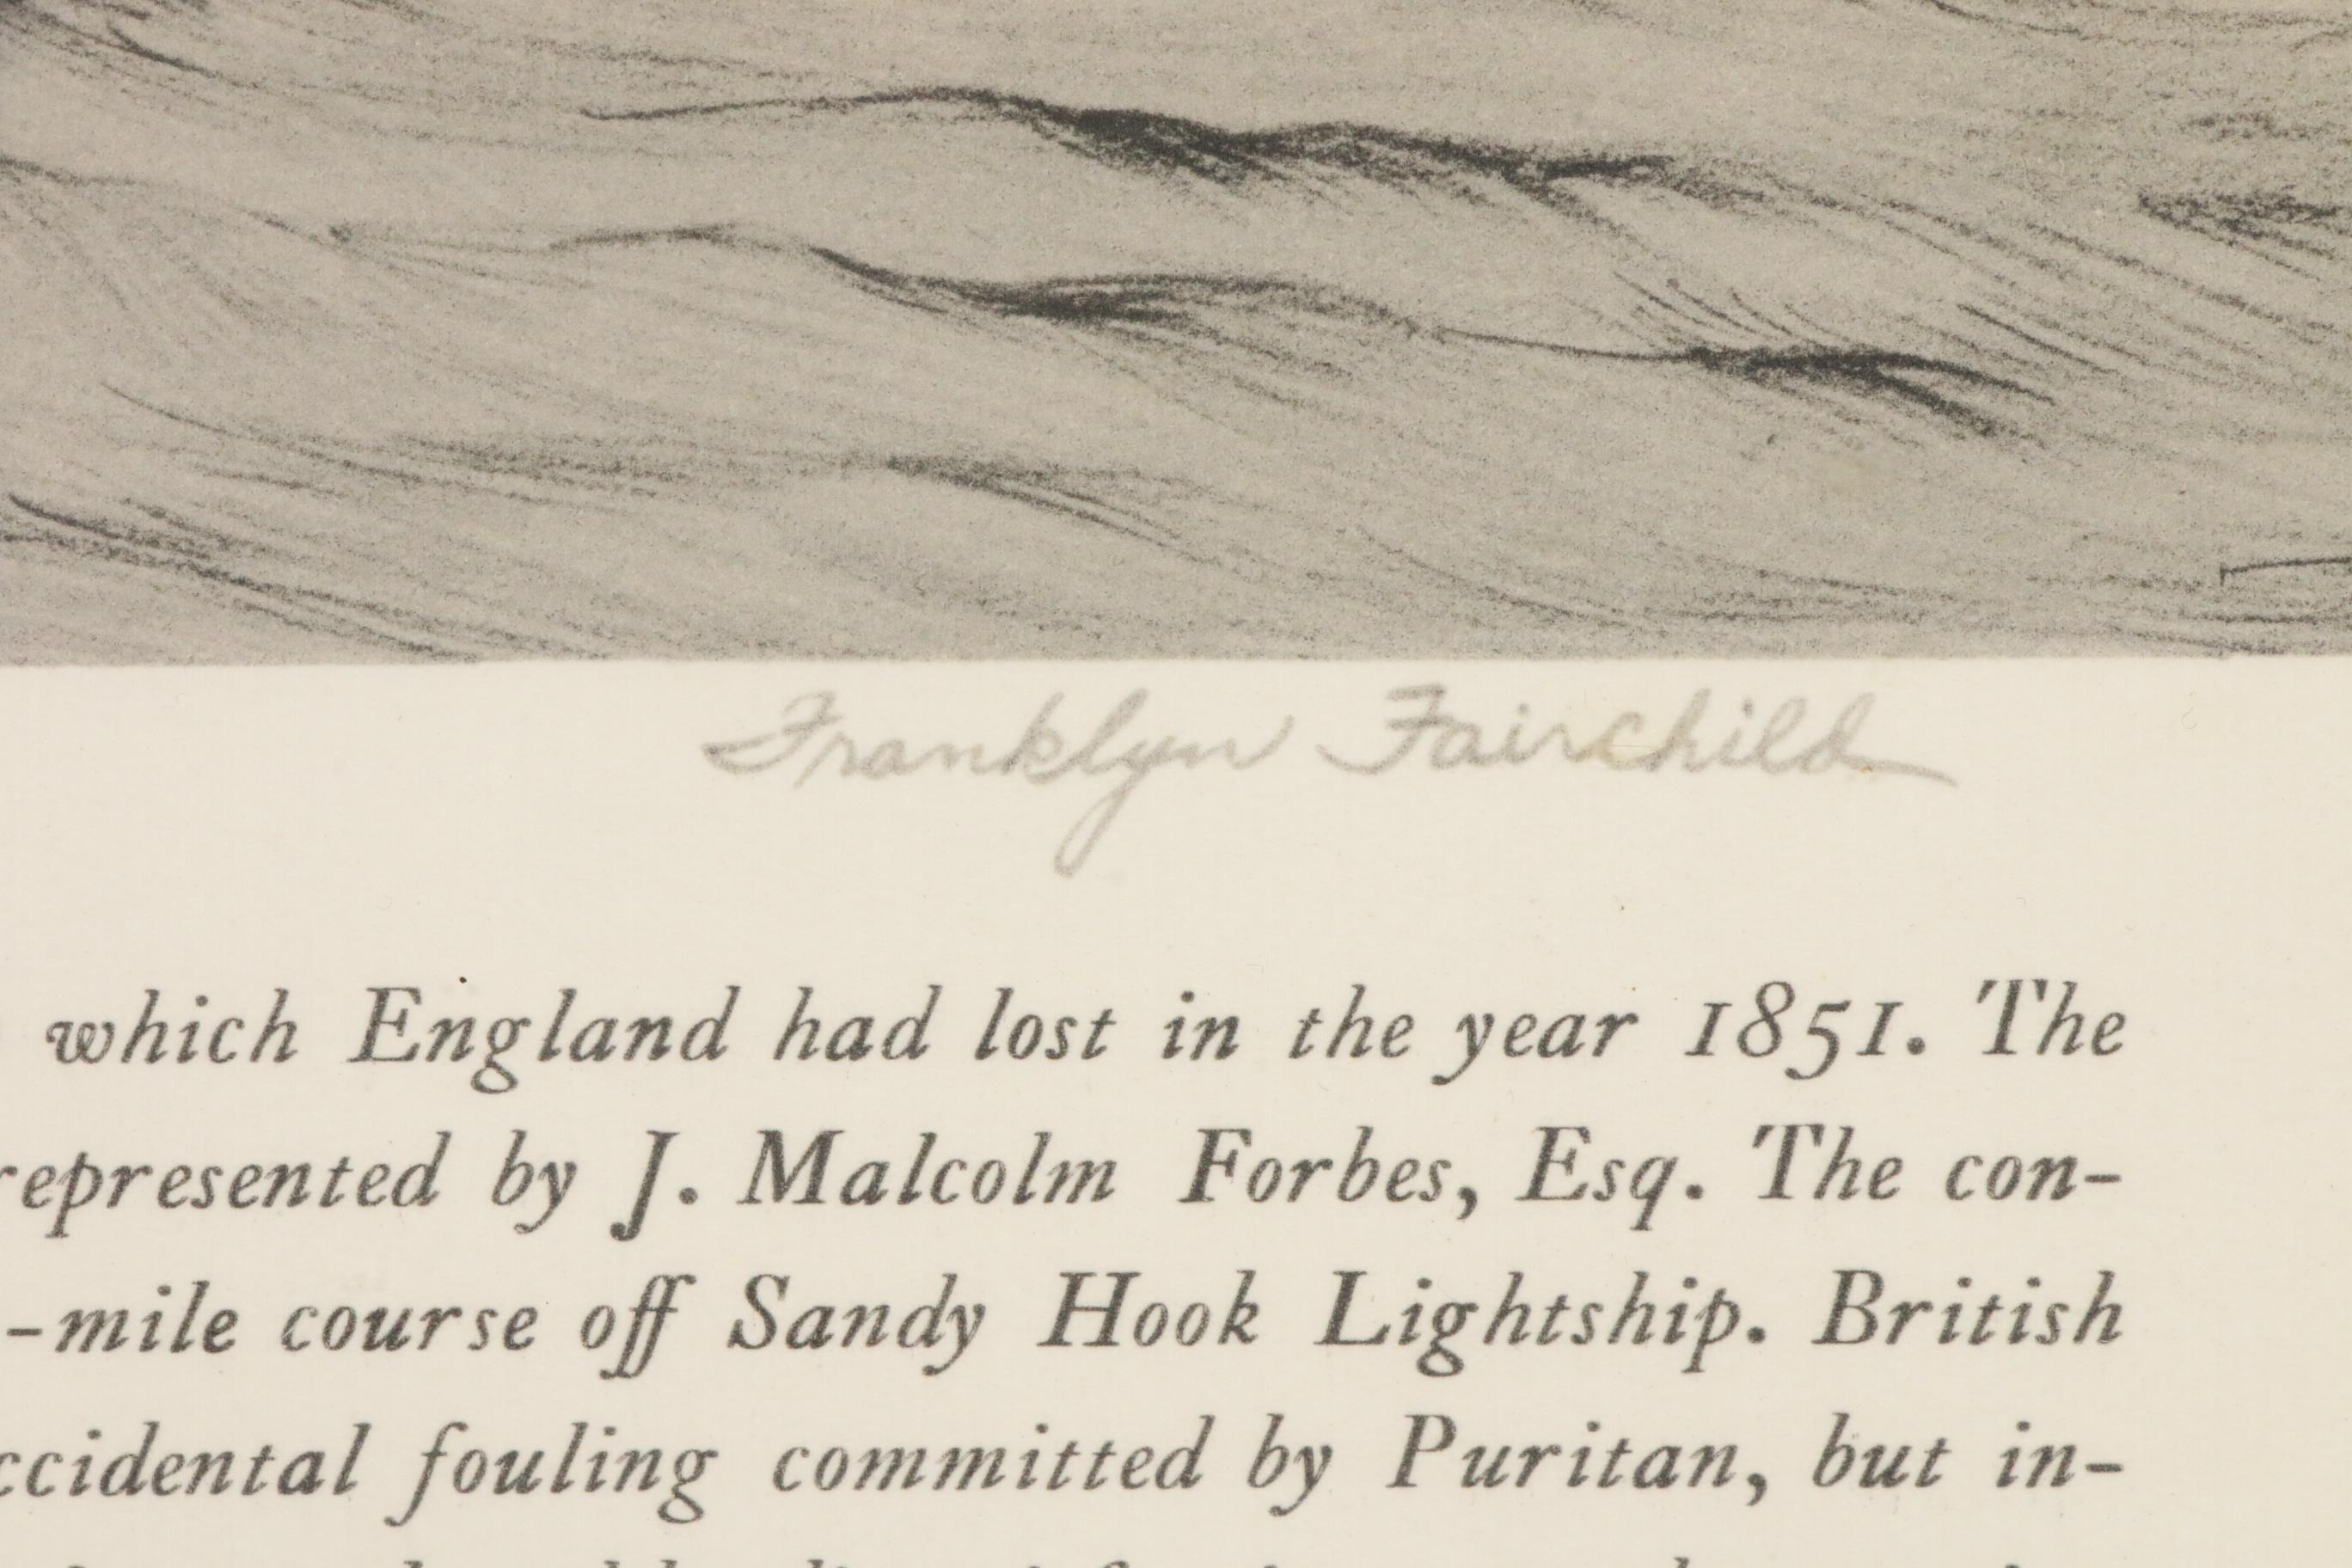 Franklyn Fairchild
which England had lost in the year 1851. The
represented by J. Malcolm Forbes, Esq. The con-
-mile course off Sandy Hook Lightship. British
ccidental fouling committed by Puritan, but in-